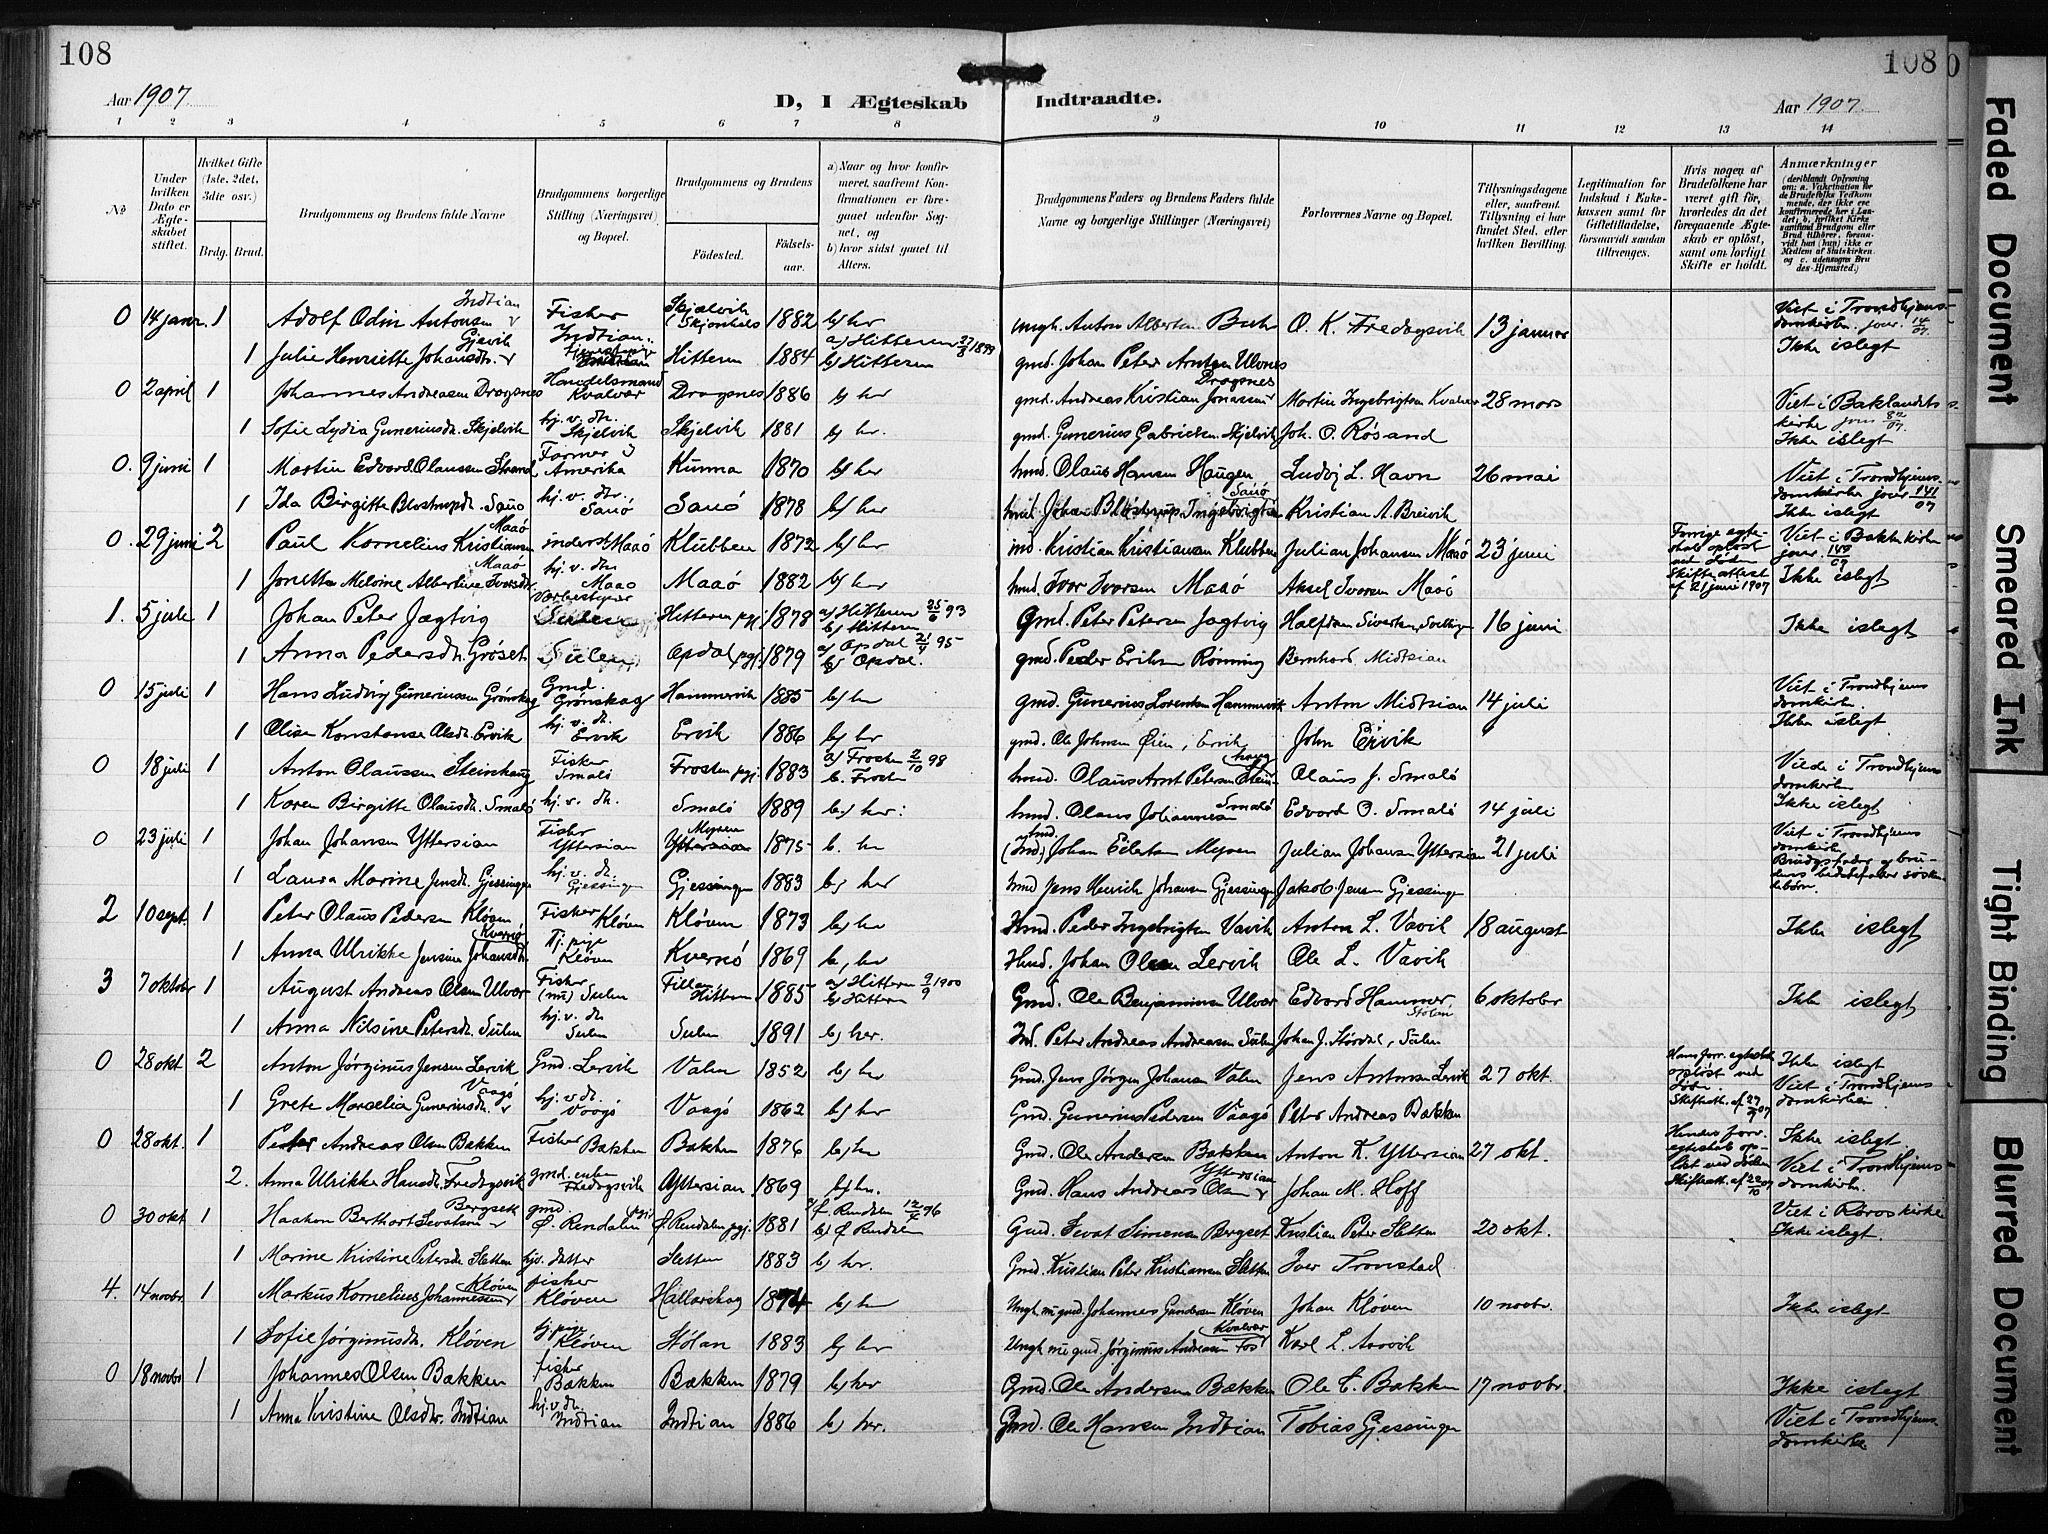 108
108
Aar 1907.
D, I Ægteskab Indtraadte.
Aar 1907.
1 2 3 4 5 6 7 8 9 10 11 12 13 14
№
Under hvilken Dato er Ægteskabet stiftet.
Hvilket Gifte (1ste, 2det, 3die osv.)
Brdg. Brud.
Brudgommens og Brudens fulde Navne
Brudgommens borgerlige Stilling (Næringsvei) og Bopæl.
Brudgommens og Brudens
Födested. Födselsaar.
a) Naar og hvor konfirmeret, saafremt Konfirmationen er foregaaet udenfor Sognet, og
b) hvor sidst gaaet til Alters.
Brudgommens Faders og Brudens Faders fulde Navne og borgerlige Stillinger (Næringsvei)
Forlovernes Navne og Bopæl.
Tillysningsdagene eller, saafremt Tillysning ei har fundet Sted, efter hvilken Bevilling.
Legitimation for Indskud i Enkekassen samt for Giftetilladelse, forsaavidt saadan tiltrænges.
Hvis nogen af Brudefolkene har været gift før, hvorledes da det foregaaende Ægteskab er oplöst, samt om lovligt Skifte er holdt.
Anmærkninger
0 14 janr. 1 Adolf Odin Antonsen Indtian Fisher Indtian Skjælvik 1882 b) her ungk. Anton Albertsen O. K. Fredagsvik 13 januar Viet i Trondhjems domkirke. jour. 14/07. Ikke islegt
1 Julie Henriette Johansdtr. Gjævik Hitteren 1884 a) Hitteren b) Hitteren gmd. Johan Peter Arntsen Ulvnes
0 2 april 1 Johannes Andreasen Dragsnes Handelsmand Kvalvær Dragsnes 1886 b) her gmd. Andreas Kristian Jonassen Dragsnes Martin Ingebrigtsen Kvalvær 28 mars Viet i Baklandets kirke
1 Sofie Lydia Guneriusdtr. Skjelvik hj. v. dtr. Skjelvik Skjelvik 1881 b) her. gmd. Gunerius Gabrielsen Skjelvik Joh. O. Røsand Ikke islegt
0. 9 juni 1 Martin Edvard Olaussen Strand Farmer i Amerika Kunna 1870 b) her hmd. Olaus Hansen Haugen Ludvig L. Havn 26 mai Viet i Trondhjems domkirke jour 141/07
1 Ida Birgitte Blostrupdtr. Sauø hj. v. dtr. Sauø Sauø 1878 b) her Johan Blostrup Ingebrigtsen Sauø Kristian A. Breivik Ikke islegt
0. 29 juni 2 Paul Kornelius Kristiansen Maaø inderst Maaø Klubben 1872 b) her ind. Kristian Kristiansen Klubben Julian Johansen Maaø 23 juni Forrige egteskab opløst ved døden Skifteattest af 21 juni 1907 Viet i Bakke kirke jour. 149/07
1 Jonetta Meloine Albertine Ivarsdtr. Maaø hj. v. dtr. Maaø Maaø 1882 b) her hmd Ivar Ivarsen Maaø Aksel Ivarsen Maaø Ikke islegt
1. 5 juli 1 Johan Peter Jægtvig Varbestyrer Sulen Hitteren pgj. 1878 a) Hitteren 25/6 93 b) Hitteren Gmd. Peter Petersen Jægtvig Halfdan Sivertsen 16 juni Ikke islegt
1 Anna Pedersdtr. Grøset Sulen Opdal pgj. 1879 a) Opdal 21/4 95 b) Opdal. gmd. Peder Eriksen Rønning Bernhard Midtsian
0 15 juli 1 Hans Ludvig Guneriussen Grønskag Gmd. Grønskag Hammervik 1885 b) her gmd. Gunerius Lorentsen Hammervik Anton Midtsian 14 juli Viet i Trondhjems domkirke
1 Olise Konstanse Olsdtr. Ervik hj. v. dtr. Ervik Ervik 1886 b) her gmd. Ole Johnsen Øien, Ervik John Ervik Ikke islegt
0 18 juli 1 Anton Olaussen Steinhaug Fisker Smalø Frosten pgj. 1883 a) Frosten 2/10 98 b. Frosten hmd. Olaus Arnt Petersen Steinhaug Olaus J. Smalø Viede i Trondhjems domkirke
1 Karen Birgitte Olausdtr. Smalø hj. v. dtr. Smalø 1889 b) her. hmd. Olaus Johannesen Smalø Edvard O. Smalø 14 juli Ikke islegt
0 23 juli 1 Johan Johansen Yttersian Fisker Yttersian Myren 1875 b. her (Ind.) Johan Eilertsen Myren Julian Johansen Yttersian 21 juli Viet i Trondhjems domkirke
1 Laura Marine Jensdtr. Gjessingen hj. v. dtr. Gjessingen Gjessingen 1883 b) her hmd Jens Henrik Johansen Gjessingen Jakob Jensen Gjessingen
2 10 sept. 1 Peter Olaus Pedersen Kløven Fisker Kløven Kløven 1873 b) her Hmd. Peder Ingebrigtsen Vavik Anton L. Vavik 18 august Ikke islegt
1 Anna Ulrikke Jensine Johansdtr. Kvernø Tj. pige Kløven Kvernø 1869 b, her Hmd. Johan Olsen Lervik Ole L. Vavik
3 7 oktobr 1 August Andreas Olsen Ulvær Fisker (nu) Sulen Fillan, Hitteren 1885 a) Hitteren 9/9 1900 b) Hitteren Gmd. Ole Benjaminsen Ulvær Edvard Hammer, Stølan 6 oktober Ikke islegt
1 Anna Nilsine Petersdtr. Sulen hj. v. dtr. Sulen Sulen 1891 b) her. Ind. Peter Andreas Andreasen Sulen Johan J. Størdal, Sulen
0 28 okt 2 Anton Jørginus Jensen Lervik Gmd. Lervik Valen 1852 b) her Gmd. Jens Jørgen Johansen Valen Jens Antonsen Lervik 27 okt. Hans forr. egteskab opløst ved døden. Skifteatt. af Ikke islegt Viet i Trondhjems domkirke
1 Grete Marselia Guneriusdtr. Vaagø hj. v. dtr. Vaagø Vaagø 1862 b) her Gmd. Gunerius Pedersen Vaagø Peter Andreas Bakken
0 28 okt. 1 Peter Andreas Olsen Bakken Fisker Bakken Bakken 1876 b) her Gmd. Ole Andersen Bakken Anton K. Yttersian 27 okt. Hendes forr. egteskab opløst ved døden Skifteatt. af 22/10 07 Ikke islegt. Viet i Trondhjems domkirke.
2. Anna Ulrikke Hansdtr. Fredagsvik gmd. enke Fredagsvik Yttersian 1869 b) her. Gmd. Hans Andreas Olsen Yttersian Johan M. Hoff
0 30 okt. 1 Haakon Berthart Sevatsen Bergsett gmd. Ø. Rendalen pgj. Ø. Rendalen pgj. 1881 a) Ø. Rendalen b) Ø Rendalen Gmd. Sevat Simensen Bergset Kristian Peter Sletten 20 okt. Viet i Røros kirke Ikke islegt.
1 Marine Kristine Petersdtr. Sletten hjv. datter Sletten 1883 b) her. Gmd. Kristian Peter Kristiansen Sletten Iver Tronstad
4. 14 novbr. 1 Markus Kornelius Johannessen Kløven fisker Kløven Hallarskag 1874 b) her Ungk. nu gmd. Johannes Gundersen Kløven Johan Kløven 10 novbr. Ikke islegt
1 Sofie Jørginusdtr. Kløven tj. pige Kløven Stølan 1883 b) her Ungk nu gmd. Jørginus Andreasen Fos Kvalvær Karl L. Aavik
0 18 novbr 1 Johannes Olsen Bakken fisker Bakken Bakken 1879 b) her Gmd. Ole Andersen Bakken Ole C. Bakken 17 novbr. Ikke islegt
1 Anna Kristine Olsdtr. Indtian hj. v. dtr. Indtian Indtian 1886 b) her. Gmd. Ole Hansen Indtian Tobias Gjessingen Viet i Trondhjems domkirke
Faded Document
Smeared Ink
Tight Binding
Blurred Document